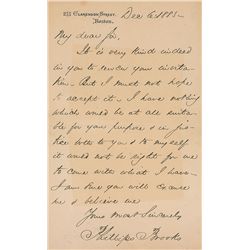 233 Clarendon Street,
Boston.
Dec 6. 1881.
My dear Sir,
It is very kind indeed
in you to renew your invita-
tion. But I must not hope
to accept it. I have nothing
which would be at all suita-
ble for your purpose & in jus-
tice both to you & to myself
it would not be right for me
to come with what I have.
I am sure you will excuse
me & believe me
Yours most sincerely
Phillips Brooks